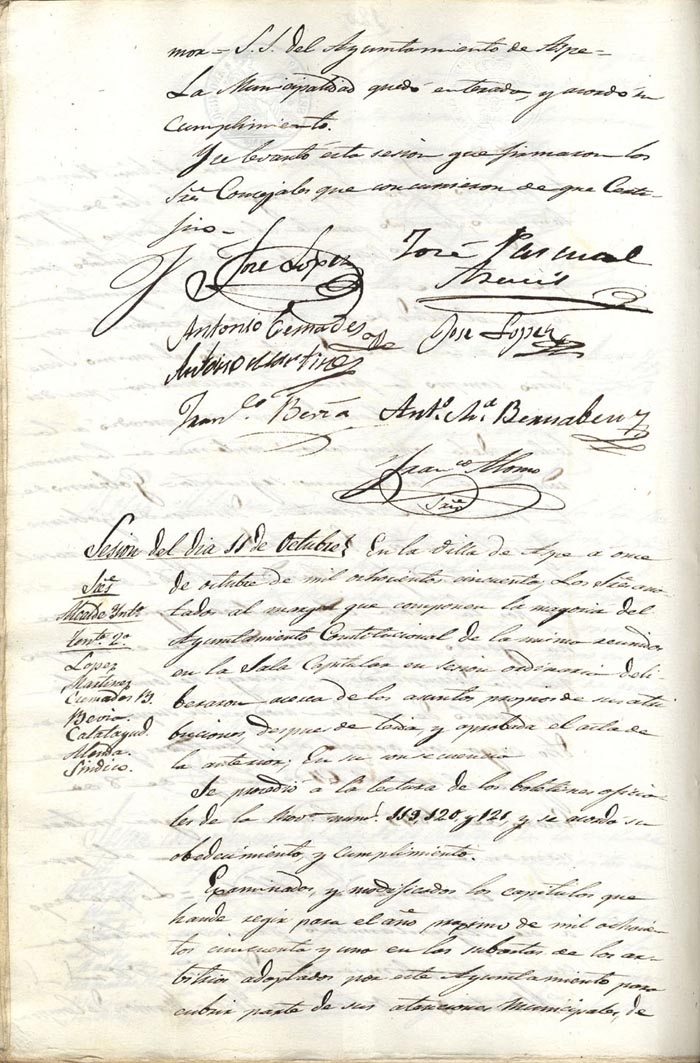 mor = S.S. del Ayuntamiento de Aspe =
La Municipalidad quedó enterada, y acordó su
cumplimiento.
Y se levantó esta sesion que firmaron los
Sres Concejales que concurrieron de que Certi-
fico =
José Lopez
José Pascual
Antonio Cremades
Jose Lopez
Antonio Martinez
Franco Bevia
Anto Ma Bernabeu
Franco Alonso
Srio
Sesion del dia 11 de Octubre. En la Villa de Aspe a once
de octubre de mil ochocientos cincuenta, Los Sres no-
tados al margen que componen la mayoria del
Ayuntamiento Constitucional de la misma reunidos
en la Sala Capitular en sesion ordinaria deli-
beraron acerca de los asuntos propios de sus atri-
buciones, despues de leida y aprobada el acta de
la anterior; En su consecuencia
Sres
Alcalde Into
Tente 2o
Lopez
Martinez
Cremades B.
Bevia.
Calatayud.
Sindico.
Se procedió a la lectura de los boletines oficia-
les de la Prova num.s 119, 120, y 121, y se acordó su
obedecimiento, y cumplimiento.
Examinados, y modificados los capitulos que
han de regir para el año proximo de mil ochocien-
tos cincuenta y uno en las subastas de los ar-
bitrios adoptados por este Ayuntamiento para
cubrir parte de sus atenciones Municipales, de